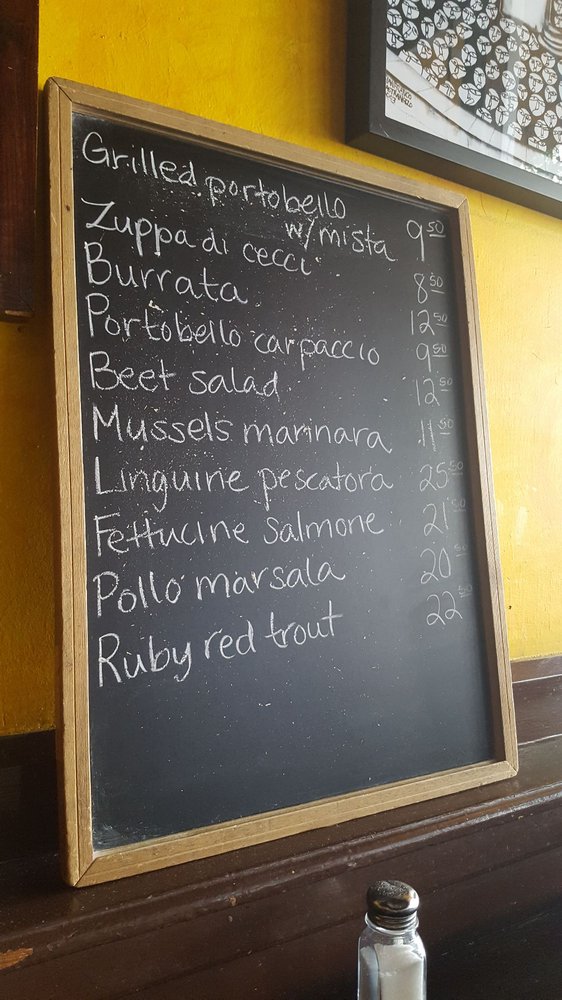 Grilled portobello
w/mista 9 50
Zuppa di cecci 8 50
Burrata 12 50
Portobello carpaccio 9 50
Beet salad 12 50
Mussels marinara 11 50
Linguine pescatora 25 50
Fettucine Salmone 21 50
Pollo marsala 20 50
Ruby red trout 22 50